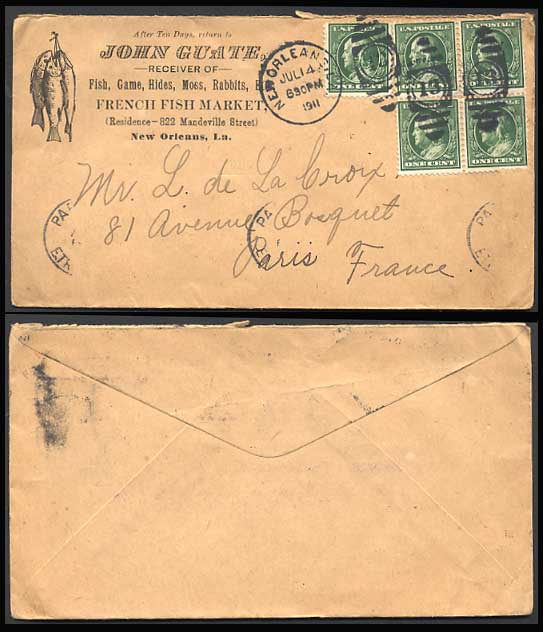 After Ten Days, return to
JOHN GUATE,
RECEIVER OF
Fish, Game, Hides, Moss, Rabbits,
FRENCH FISH MARKET,
(Residence—822 Mandeville Street)
New Orleans, La.
NEW ORLEANS
JUL 14
630PM
1911
U.S. POSTAGE
U.S. POSTAGE
U.S. POSTAGE
ONE CENT
ONE CENT
Mr. L. de La Croix
81 Avenue Bosquet
Paris France
PAR
ETR
PA
ET
PA
ETR